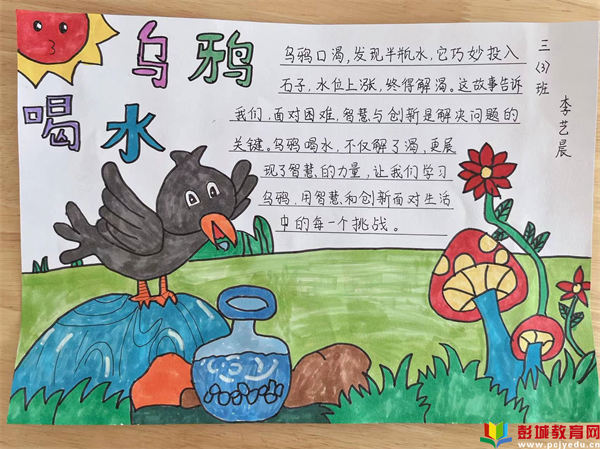 乌鸦
喝水
乌鸦口渴,发现半瓶水,它巧妙投入
石子,水位上涨,终得解渴。这故事告诉
我们,面对困难,智慧与创新是解决问题的
关键。乌鸦喝水,不仅解了渴,更展
现了智慧的力量,让我们学习
乌鸦,用智慧和创新面对生活
中的每一个挑战。
三(3)班
李艺晨
彭城教育网
www.pcjyedu.cn